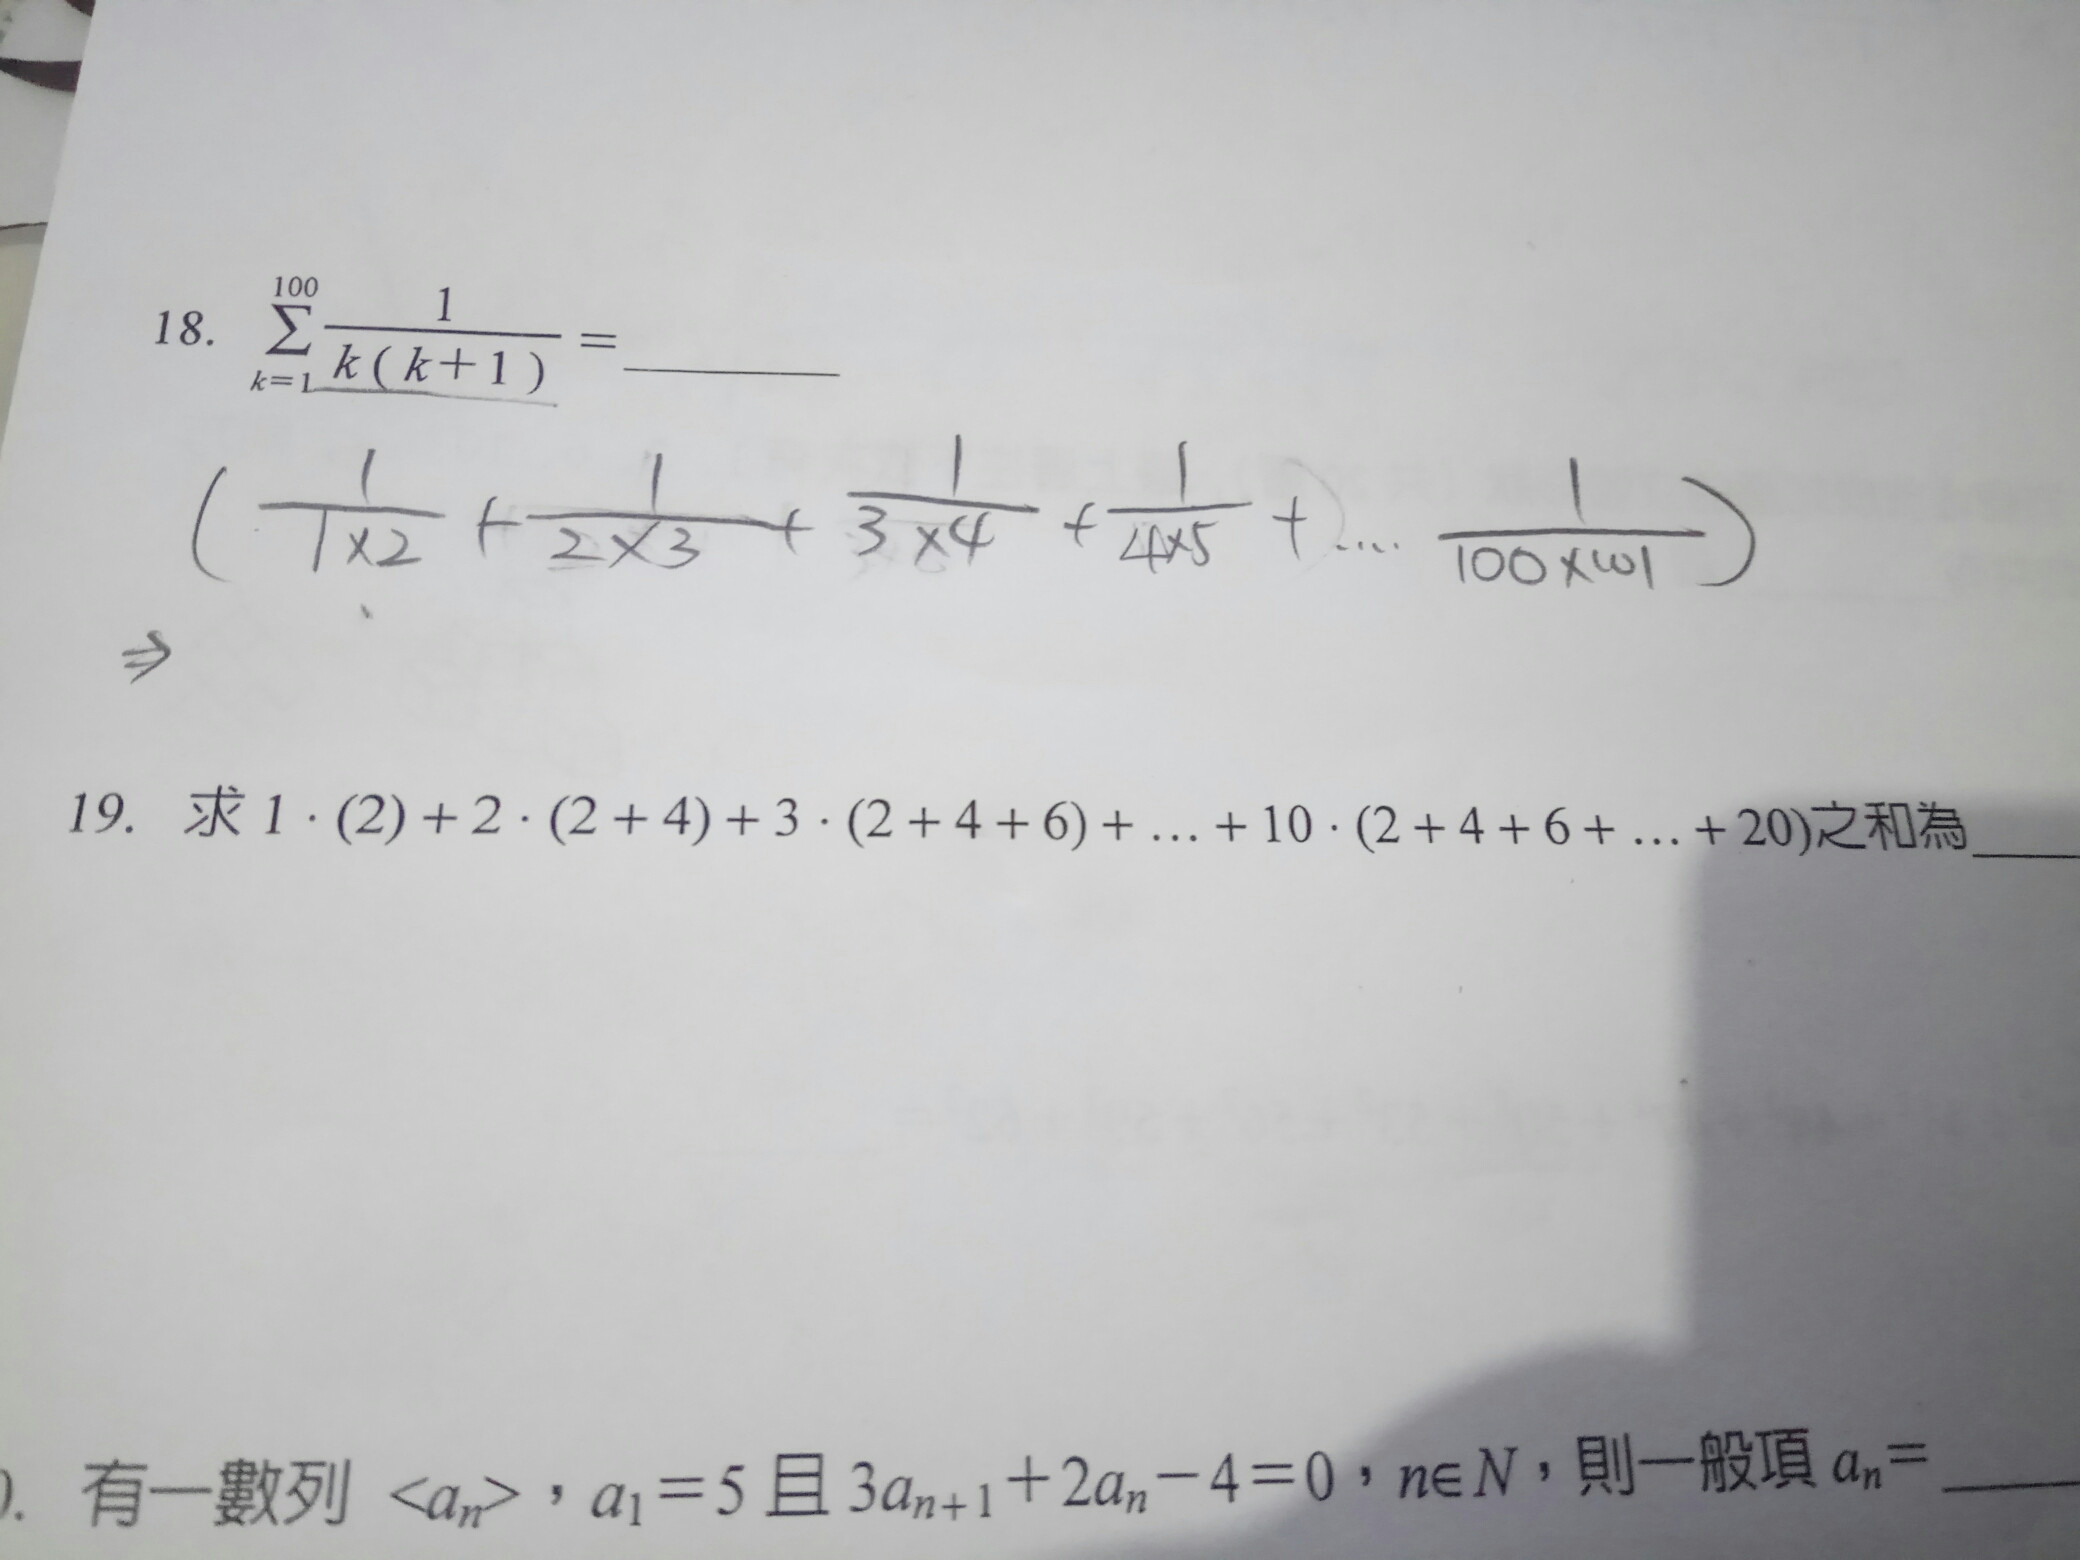 18. \sum_{k=1}^{100} \frac{1}{k(k+1)} = ______
( \frac{1}{1×2} + \frac{1}{2×3} + \frac{1}{3×4} + \frac{1}{4×5} + .... \frac{1}{100×101} )
⇒
19. 求 1·(2)+2·(2+4)+3·(2+4+6)+…+10·(2+4+6+…+20)之和為____
). 有一數列 <a_n>，a_1=5 且 3a_{n+1}+2a_n−4=0，n∈N，則一般項 a_n=____